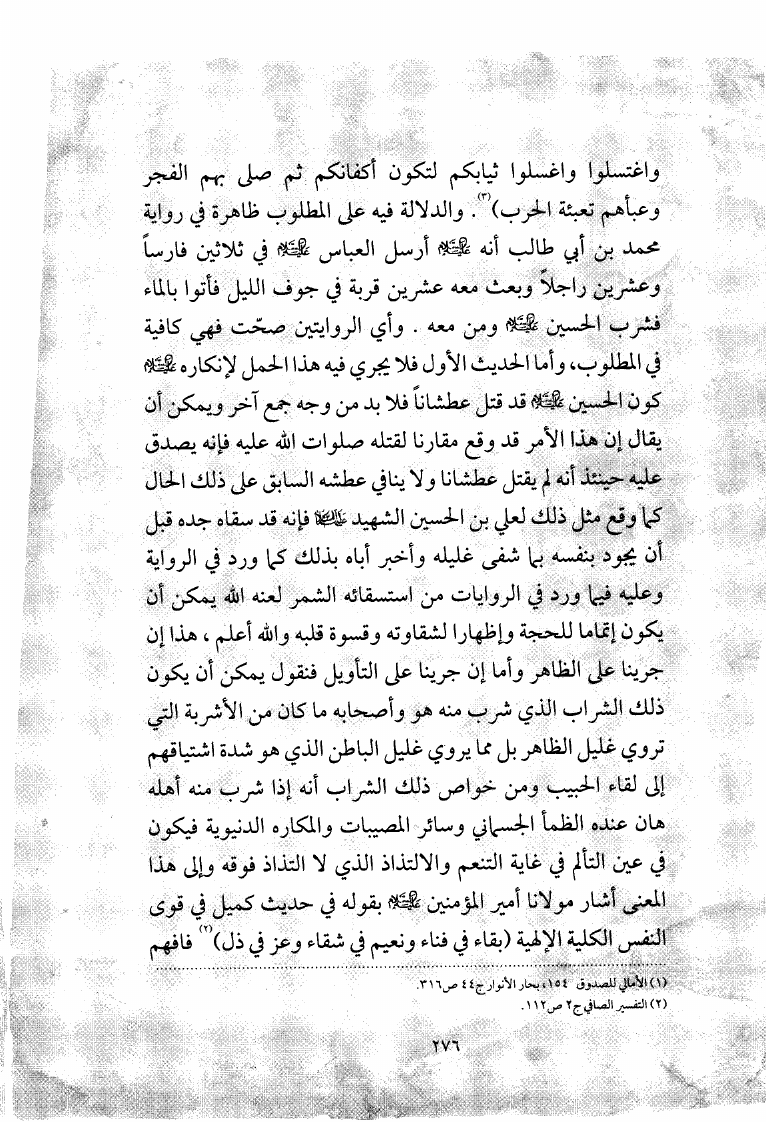 واغتسلوا واغسلوا ثيابكم لتكون أكفانكم ثم صلى بهم الفجر
وعبأهم تعبئة الحرب)(٣). والدلالة فيه على المطلوب ظاهرة في رواية
محمد بن أبي طالب أنه ﷺ أرسل العباس ﷺ في ثلاثين فارساً
وعشرين راجلاً وبعث معه عشرين قربة في جوف الليل فأتوا بالماء
فشرب الحسين ﷺ ومن معه . وأي الروايتين صحّت فهي كافية
في المطلوب، وأما الحديث الأول فلا يجري فيه هذا الحمل لإنكاره ﷺ
كون الحسين ﷺ قد قتل عطشاناً فلا بد من وجه جمع آخر ويمكن أن
يقال إن هذا الأمر قد وقع مقارنا لقتله صلوات الله عليه فإنه يصدق
عليه حينئذ أنه لم يقتل عطشانا ولا ينافي عطشه السابق على ذلك الحال
كما وقع مثل ذلك لعلي بن الحسين الشهيد فإنه قد سقاه جده قبل
أن يجود بنفسه بما شفى غليله وأخبر أباه بذلك كما ورد في الرواية
وعليه فيما ورد في الروايات من استسقائه الشمر لعنه الله يمكن أن
يكون إتماما للحجة وإظهارا لشقاوته وقسوة قلبه والله أعلم ، هذا إن
جرينا على الظاهر وأما إن جرينا على التأويل فنقول يمكن أن يكون
ذلك الشراب الذي شرب منه هو وأصحابه ما كان من الأشربة التي
تروي غليل الظاهر بل مما يروي غليل الباطن الذي هو شدة اشتياقهم
إلى لقاء الحبيب ومن خواص ذلك الشراب أنه إذا شرب منه أهله
هان عنده الظمأ الجسماني وسائر المصيبات والمكاره الدنيوية فيكون
في عين التألم في غاية التنعم والالتذاذ الذي لا التذاذ فوقه وإلى هذا
المعنى أشار مولانا أمير المؤمنين ﷺ بقوله في حديث كميل في قوى
النفس الكلية الإلهية (بقاء في فناء ونعيم في شقاء وعز في ذل)(٢) فافهم
(١) الأمالي للصدوق ١٥٤، بحار الأنوار ج٤٤ ص٣١٦.
(٢) التفسير الصافي ج٢ ص١١٢.
٢٧٦